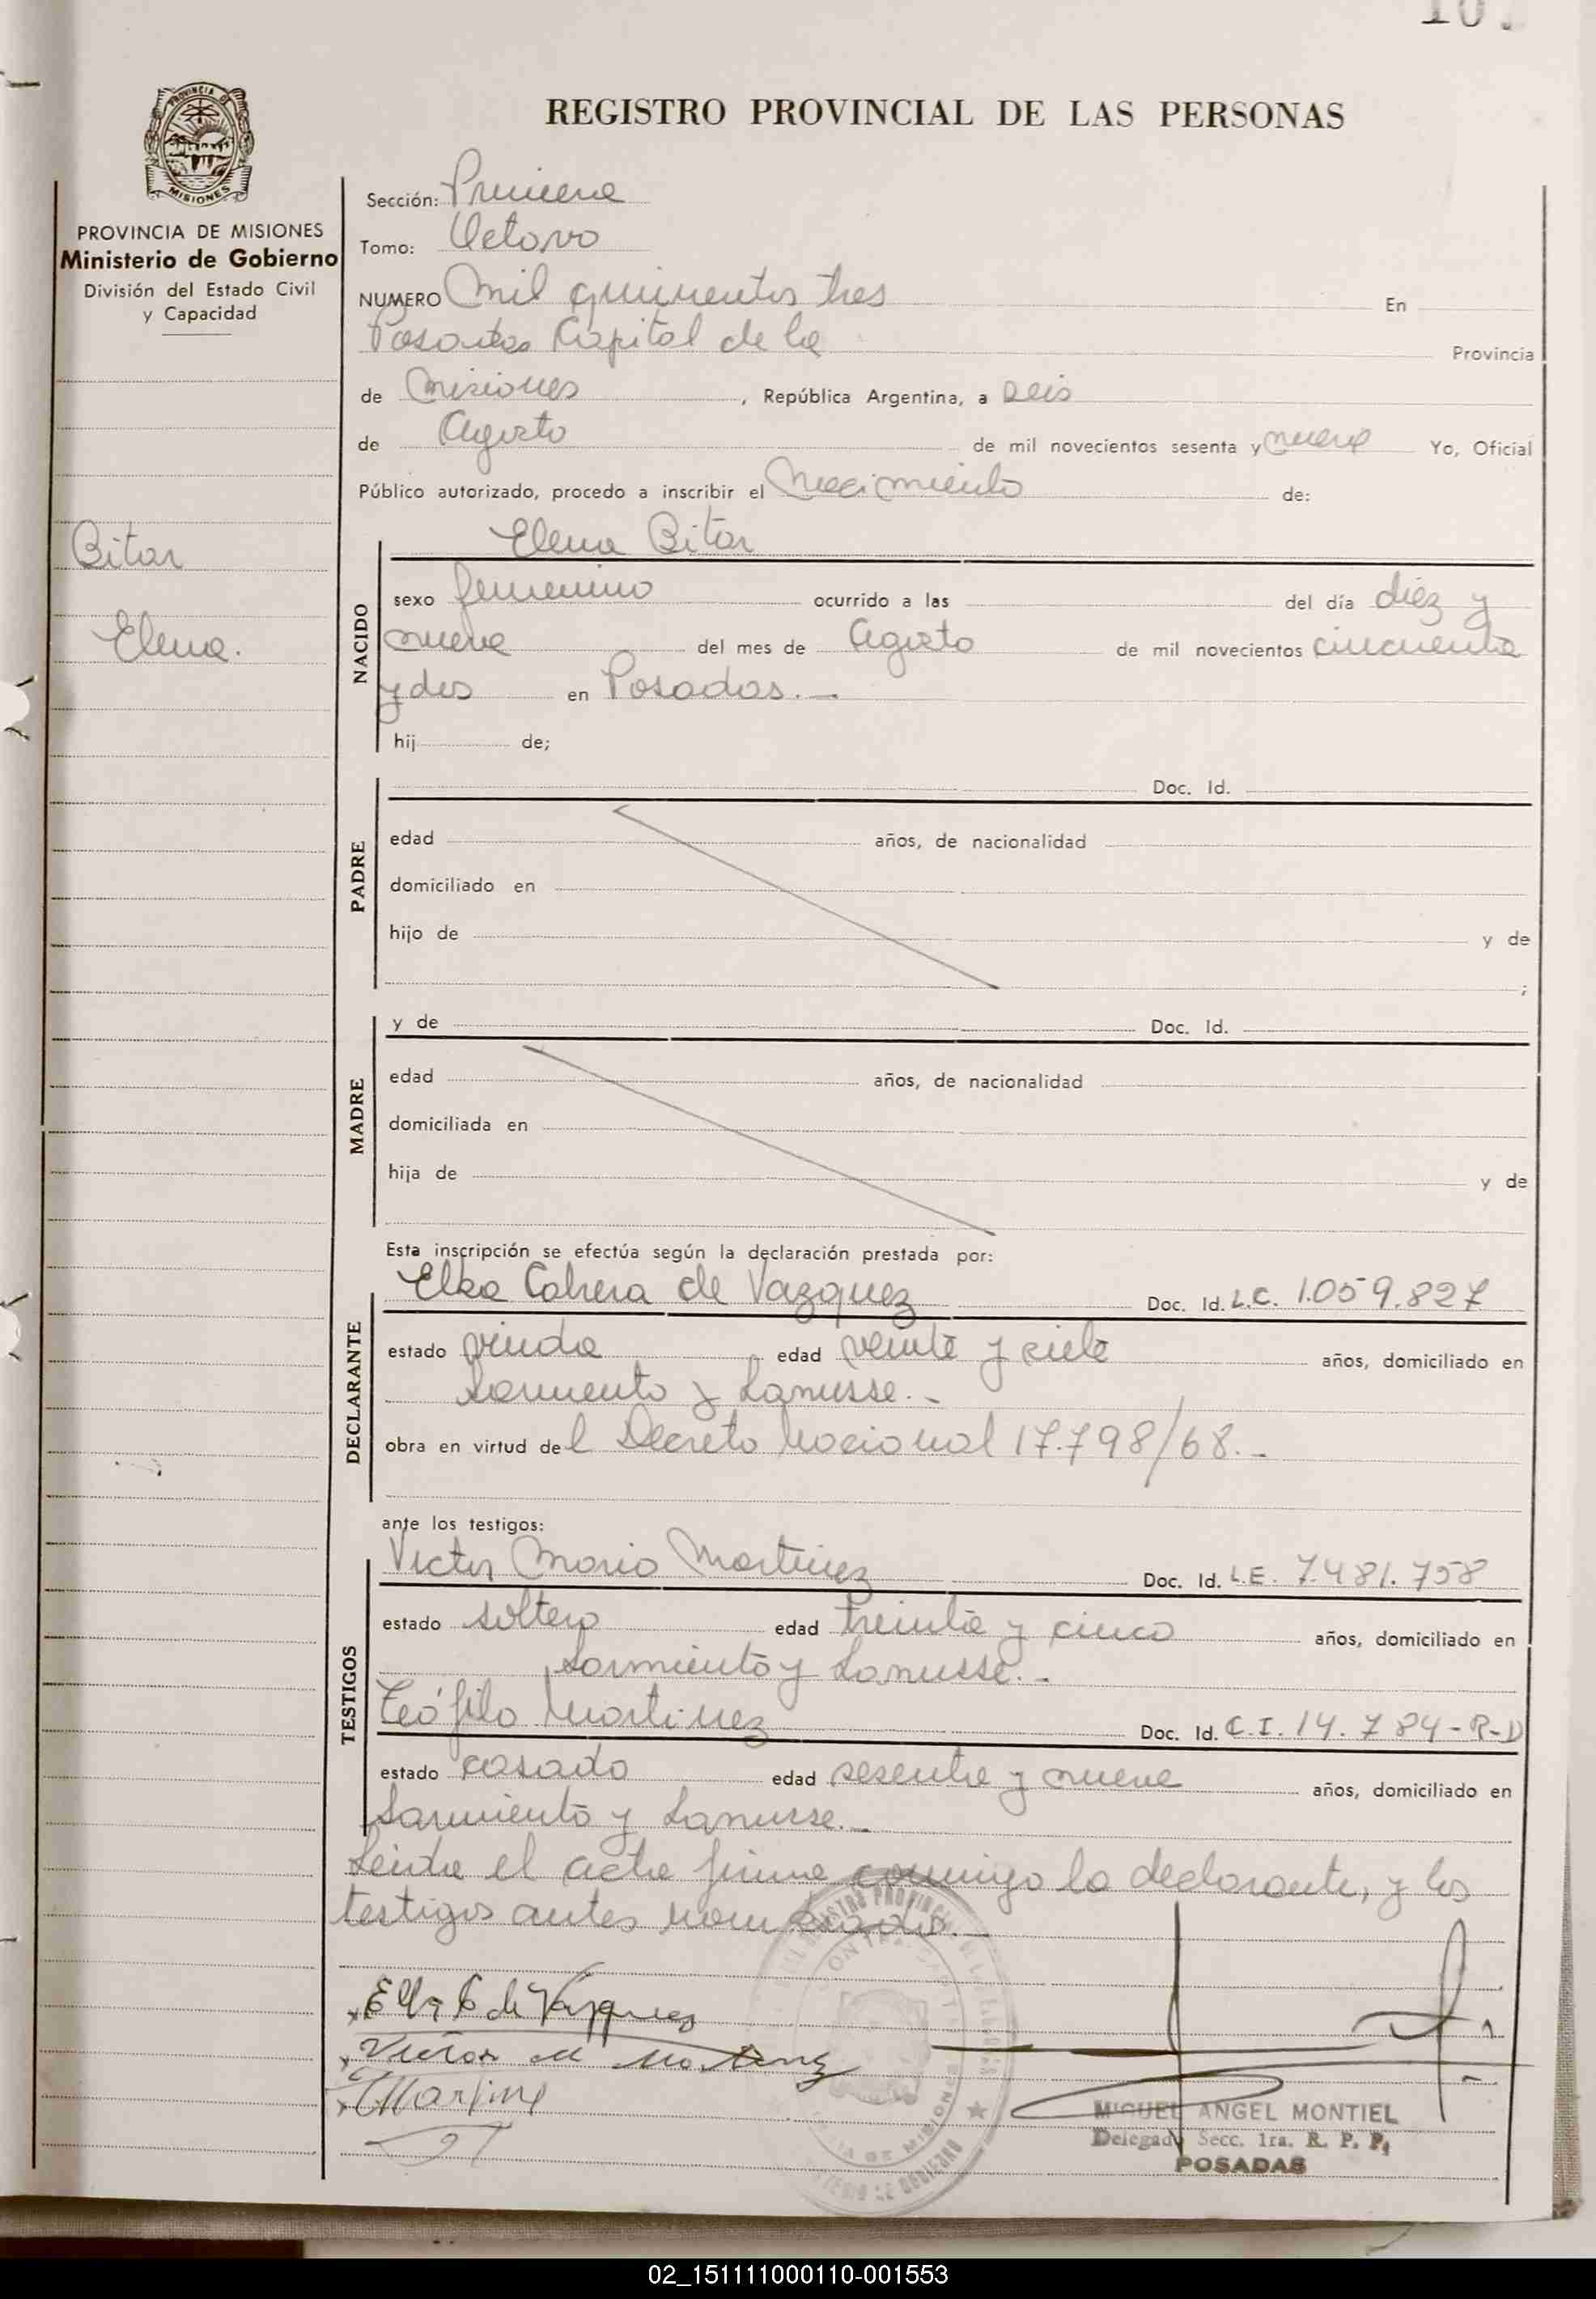 REGISTRO PROVINCIAL DE LAS PERSONAS
PROVINCIA DE MISIONES
Ministerio de Gobierno
División del Estado Civil
y Capacidad
Bitar
Elena.
Sección: Primera
Tomo: Octavo
NUMERO Mil quinientos tres En
Posadas Capital de la Provincia
de Misiones, República Argentina, a seis
de Agosto de mil novecientos sesenta y nueve Yo, Oficial
Público autorizado, procedo a inscribir el Nacimiento de:
Elena Bitar
NACIDO
sexo femenino ocurrido a las del día diez y
nueve del mes de Agosto de mil novecientos cincuenta
y dos en Posadas.—
hij de;
PADRE
Doc. Id.
edad años, de nacionalidad
domiciliado en
hijo de y de
;
MADRE
y de Doc. Id.
edad años, de nacionalidad
domiciliada en
hija de y de
Esta inscripción se efectúa según la declaración prestada por:
DECLARANTE
Elba Cabrera de Vazquez Doc. Id. L.C. 1.059.827
estado viuda edad veinte y siete años, domiciliado en
Sarmiento y Lanusse.-
obra en virtud del Decreto Nacional 17.798/68.-
ante los testigos:
TESTIGOS
Victor Mario Martinez Doc. Id. L.E. 7.481.758
estado soltero edad treinta y cinco años, domiciliado en
Sarmiento y Lanusse.-
Teófilo Martinez Doc. Id. C.I. 14.784-R-D
estado casado edad sesenta y nueve años, domiciliado en
Sarmiento y Lanusse.-
Leida el acta firma conmigo la declarante, y los
testigos antes nombrados.-
Elba C de Vazquez
Victor M Martinez
Martinez
MIGUEL ANGEL MONTIEL
Delegado Secc. 1ra. R. P. P.
POSADAS
02_151111000110-001553